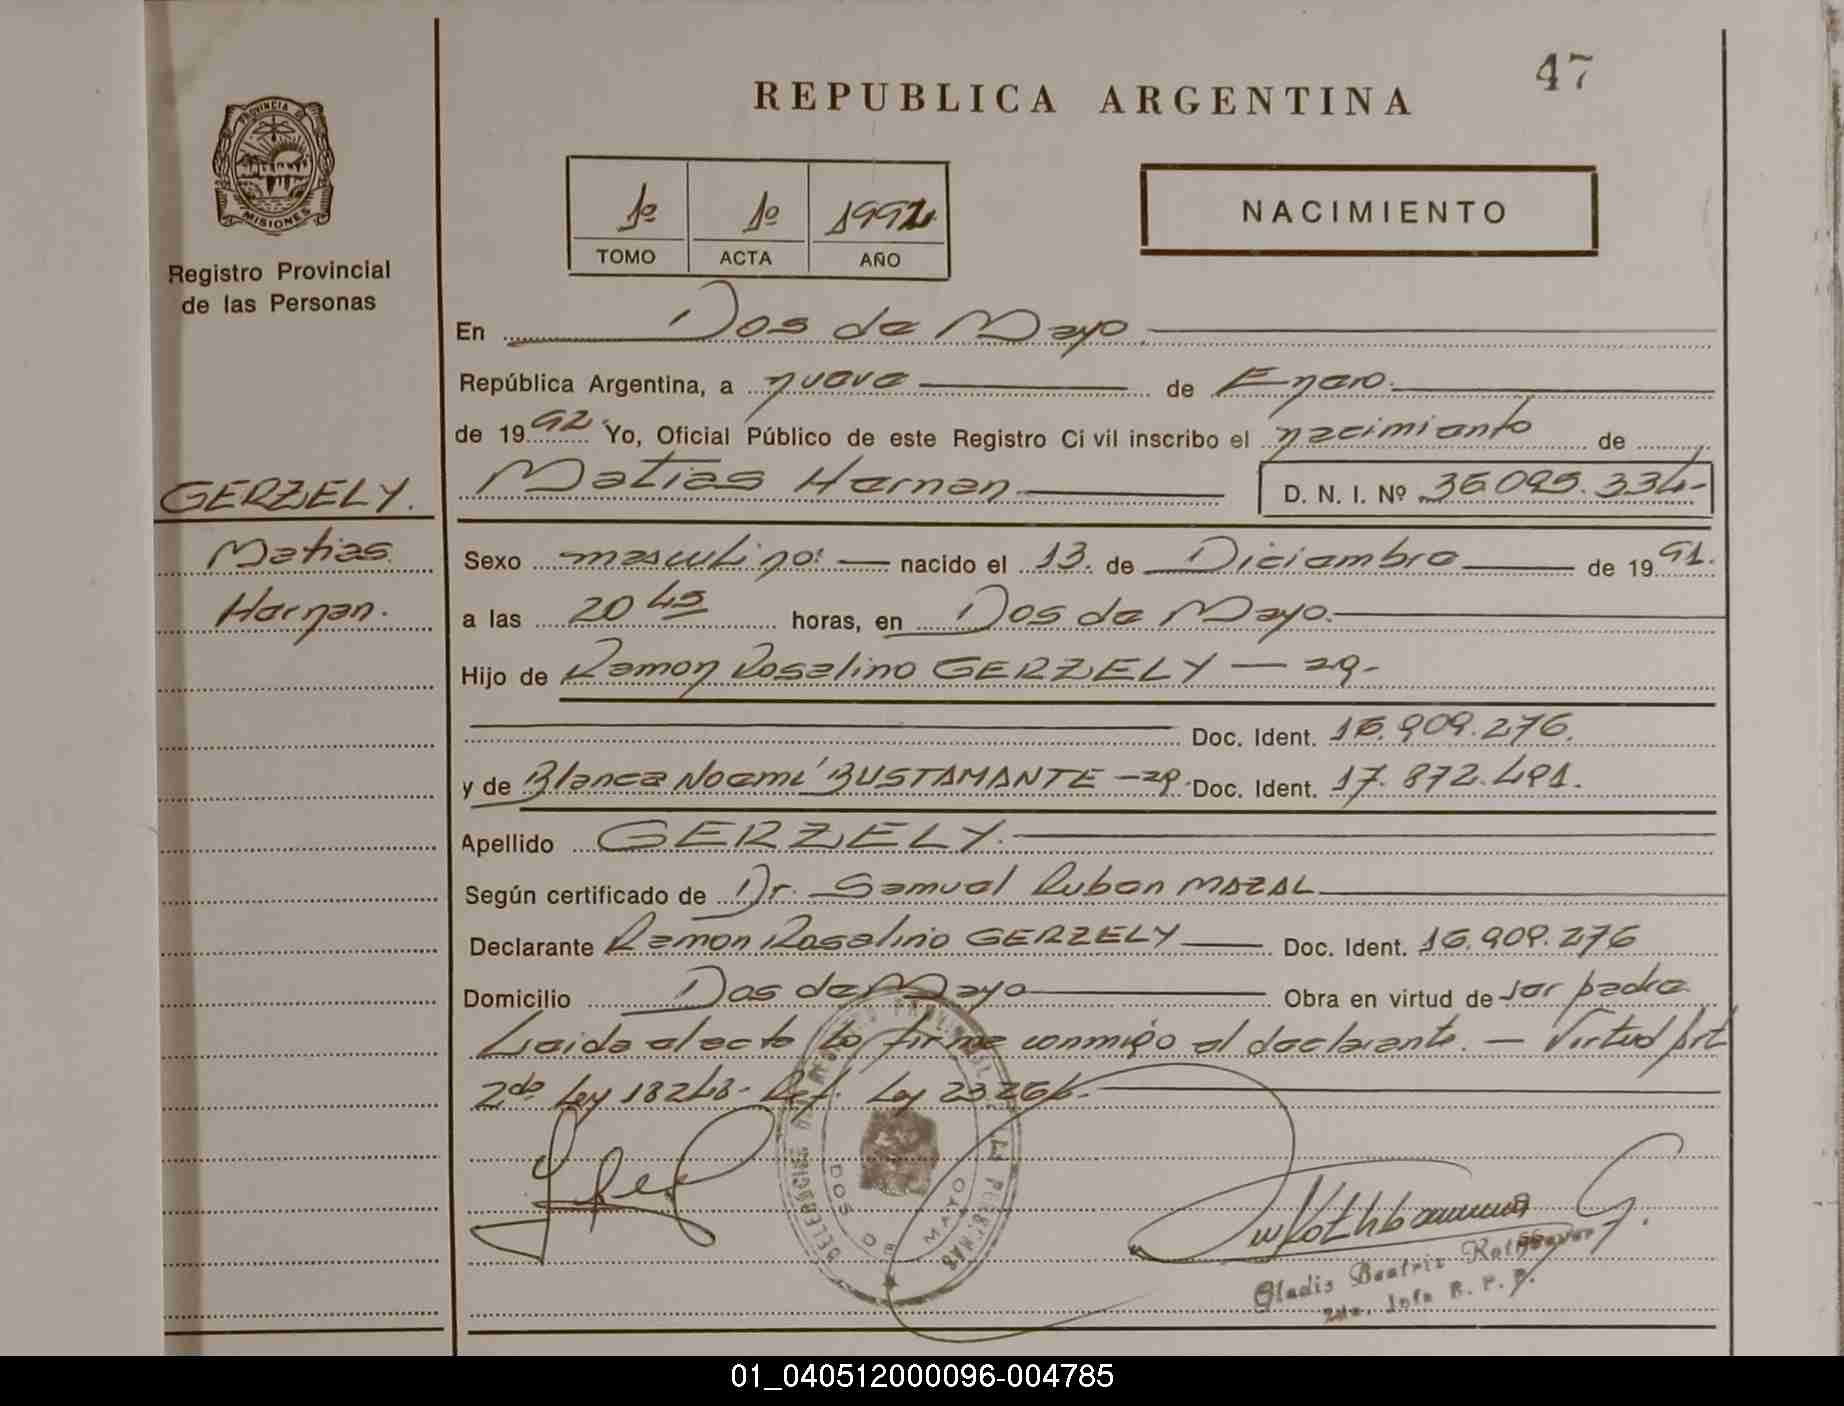 47
REPUBLICA ARGENTINA
PROVINCIA DE
MISIONES
Registro Provincial
de las Personas
1º 1º 1992
TOMO ACTA AÑO
NACIMIENTO
En Dos de Mayo
República Argentina, a nueve de Enero
de 1992. Yo, Oficial Público de este Registro Civil inscribo el nacimiento de
GERZELY.
Matias Hernan D. N. I. Nº 36.095.334-
Matias
Hernan.
Sexo masculino: nacido el 13. de Diciembre de 1991.
a las 20 45 horas, en Dos de Mayo.
Hijo de Ramon Rosalino GERZELY — ag-
Doc. Ident. 16.909.276.
y de Blanca Noemí BUSTAMANTE - ag. Doc. Ident. 17.872.491.
Apellido GERZELY.
Según certificado de Dr. Samuel Ruben MAZAL
Declarante Ramon Rosalino GERZELY Doc. Ident. 16.909.276
Domicilio Dos de Mayo Obra en virtud de ser padre
Leida el acta la firma conmigo el declarante. — Virtud Art
2do Ley 18248- Ref. Ley 23.264-
DOS DE MAYO
Gladis Beatriz
01_040512000096-004785